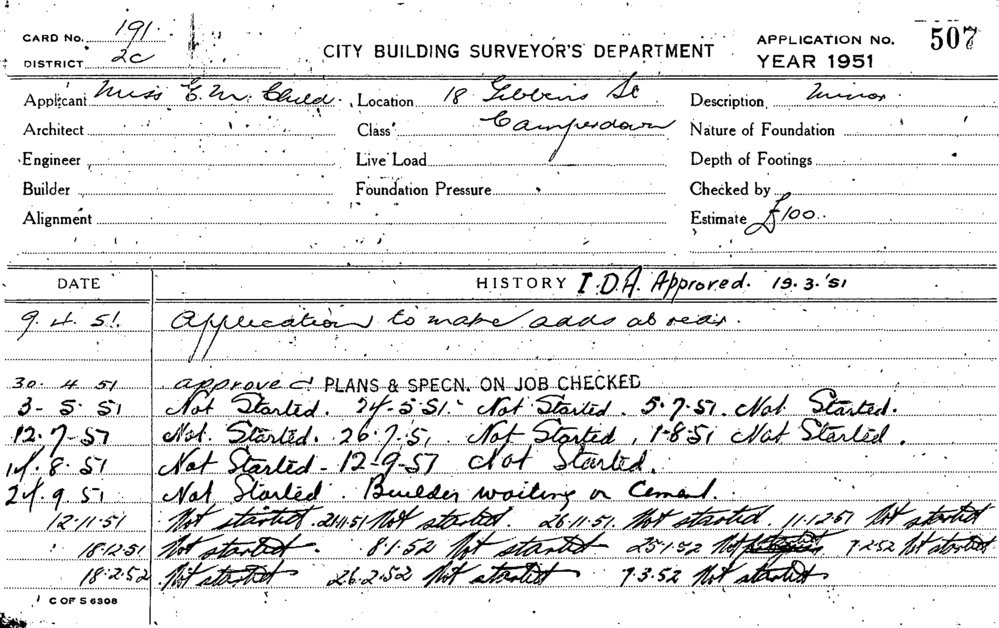 CARD No. 191. CITY BUILDING SURVEYOR'S DEPARTMENT APPLICATION No. 507
DISTRICT 2c YEAR 1951
Applicant Miss E. M. Child. Location 18 Gibbens St Description Minor
Architect Class Camperdown Nature of Foundation
Engineer Live Load Depth of Footings
Builder Foundation Pressure Checked by
Alignment Estimate £100..
DATE HISTORY I.D.A. Approved. 19.3.'51
9.4.51. Application to make adds at rear.
30.4.51 approved PLANS & SPECN. ON JOB CHECKED
3-5.51 Not Started. 24-5-51. Not Started. 5.7.51. Not Started.
12.7-51 Not. Started. 26.7.51. Not Started, 1-8.51 Not Started.
14.8.51 Not Started - 12-9-51 Not Started.
24.9.51 Not Started. Builder waiting on Cement.
12.11.51 Not started. 21.11.51 Not started. 26.11.51. Not started. 11.12.51 Not started
18.12.51 Not started. 8.1.52 Not started 25.1.52 Not 7.2.52 Not started
18.2.52 Not started 26.2.52 Not started 7.3.52 Not started
C OF S 6308